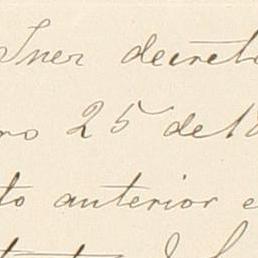 Iner decreto
ro 25 del
to anterior e